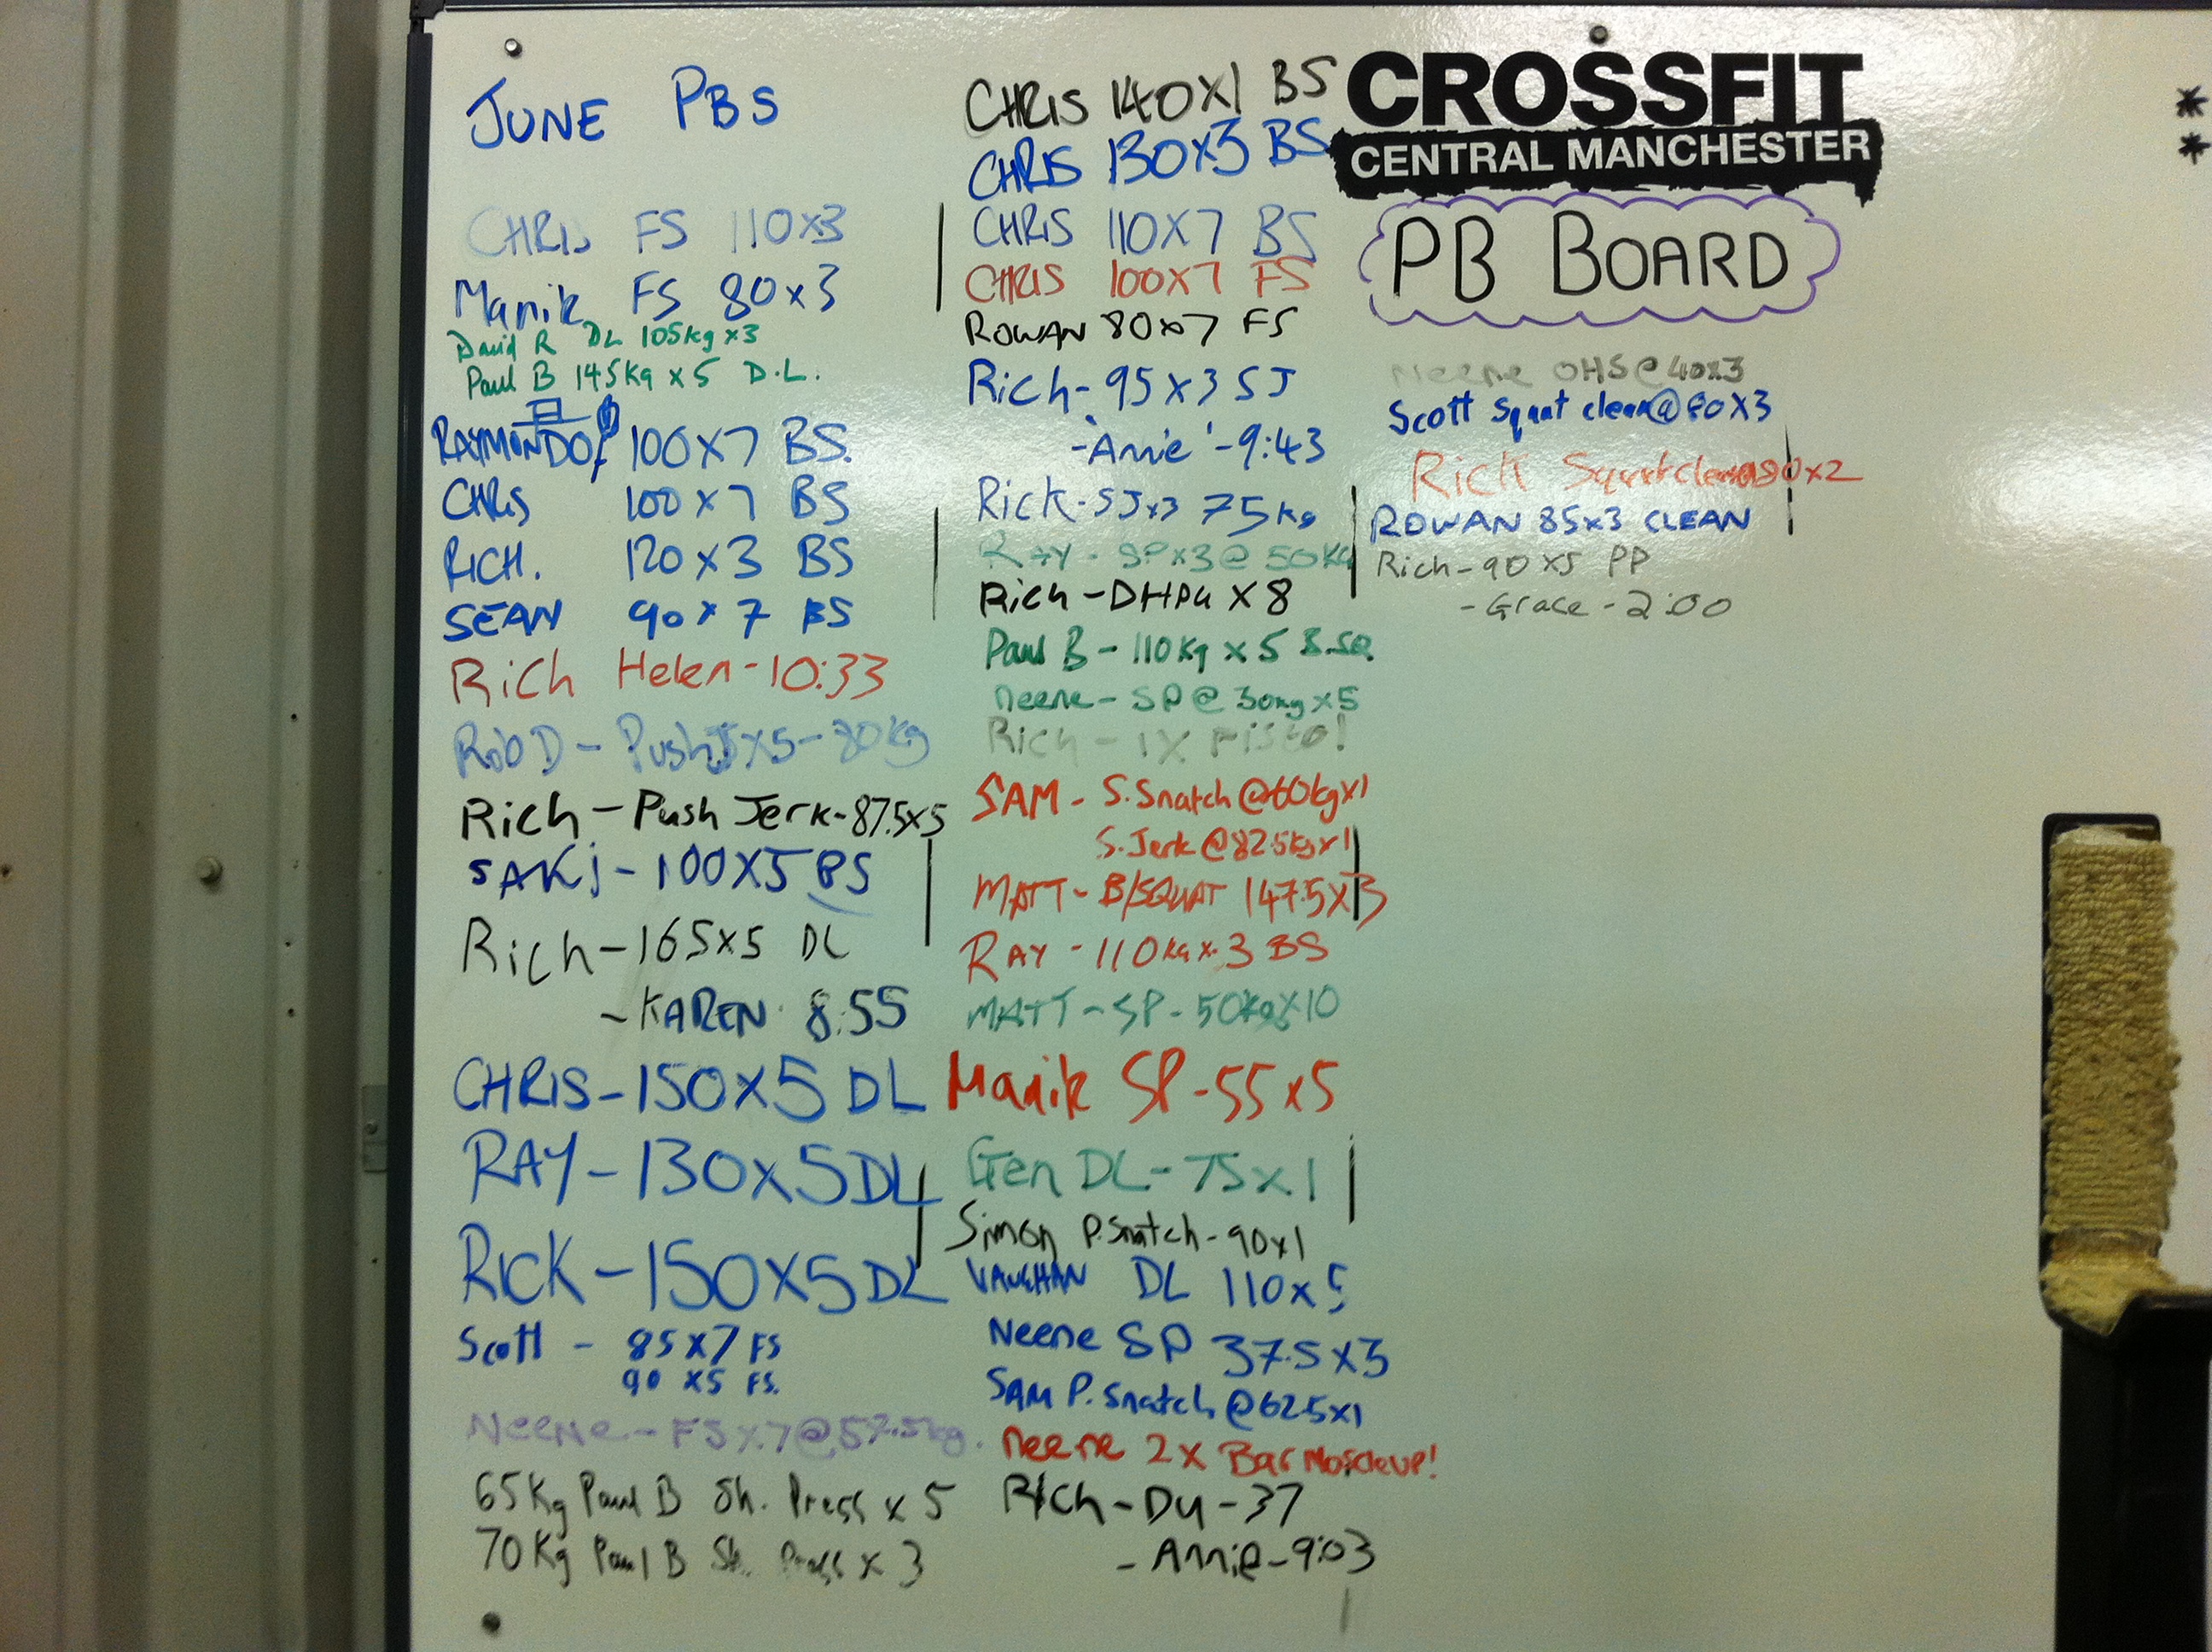 JUNE PBS
CHRIS FS 110x3
Manik FS 80x3
David R DL 105kg x3
Paul B 145Kg x 5 D.L.
RAYMONDO 100x7 BS.
CHRIS 100x7 BS
RICH. 120x3 BS
SEAN 90x7 BS
Rich Helen-10:33
Rob D - Push J x5-80kg
Rich-Push Jerk-87.5x5
SAKJ-100x5 BS
Rich-165x5 DL
-KAREN 8:55
CHRIS-150x5 DL
RAY-130x5DL
RICK-150x5DL
Scott - 85x7 FS
90 x5 FS.
Neene-FSx7@57.5kg.
65Kg Paul B Sh. Press x 5
70Kg Paul B Sh. Press x 3
CHRIS 140x1 BS
CHRIS 130x3 BS
CHRIS 110x7 BS
CHRIS 100x7 FS
ROWAN 80x7 FS
Rich-95x3 SJ
-'Annie'-9:43
Rick-SJx3 75kg
RAY-SPx3@50KG
Rich-DHPU x8
Paul B-110Kg x 5 B.SQ.
Neene-SP@30kg x5
Rich-1x Pistol!
SAM-S.Snatch@60kgx1
S.Jerk@82.5kgx1
MATT-B/SQUAT 147.5x3
RAY-110kg x 3 BS
MATT-SP-50kgx10
Manik SP-55x5
Gen DL-75x1
Simon P.Snatch-90x1
VAUGHAN DL 110x5
Neene SP 37.5x3
SAM P.Snatch@62.5x1
Neene 2x Bar Moscleup!
Rich-DU-37
-Annie-9:03
CROSSFIT
CENTRAL MANCHESTER
PB BOARD
Neene OHS@40x3
Scott Squat clean@80x3
Rick Squat clean@80x2
ROWAN 85x3 CLEAN
Rich-90x5 PP
-Grace-2:00